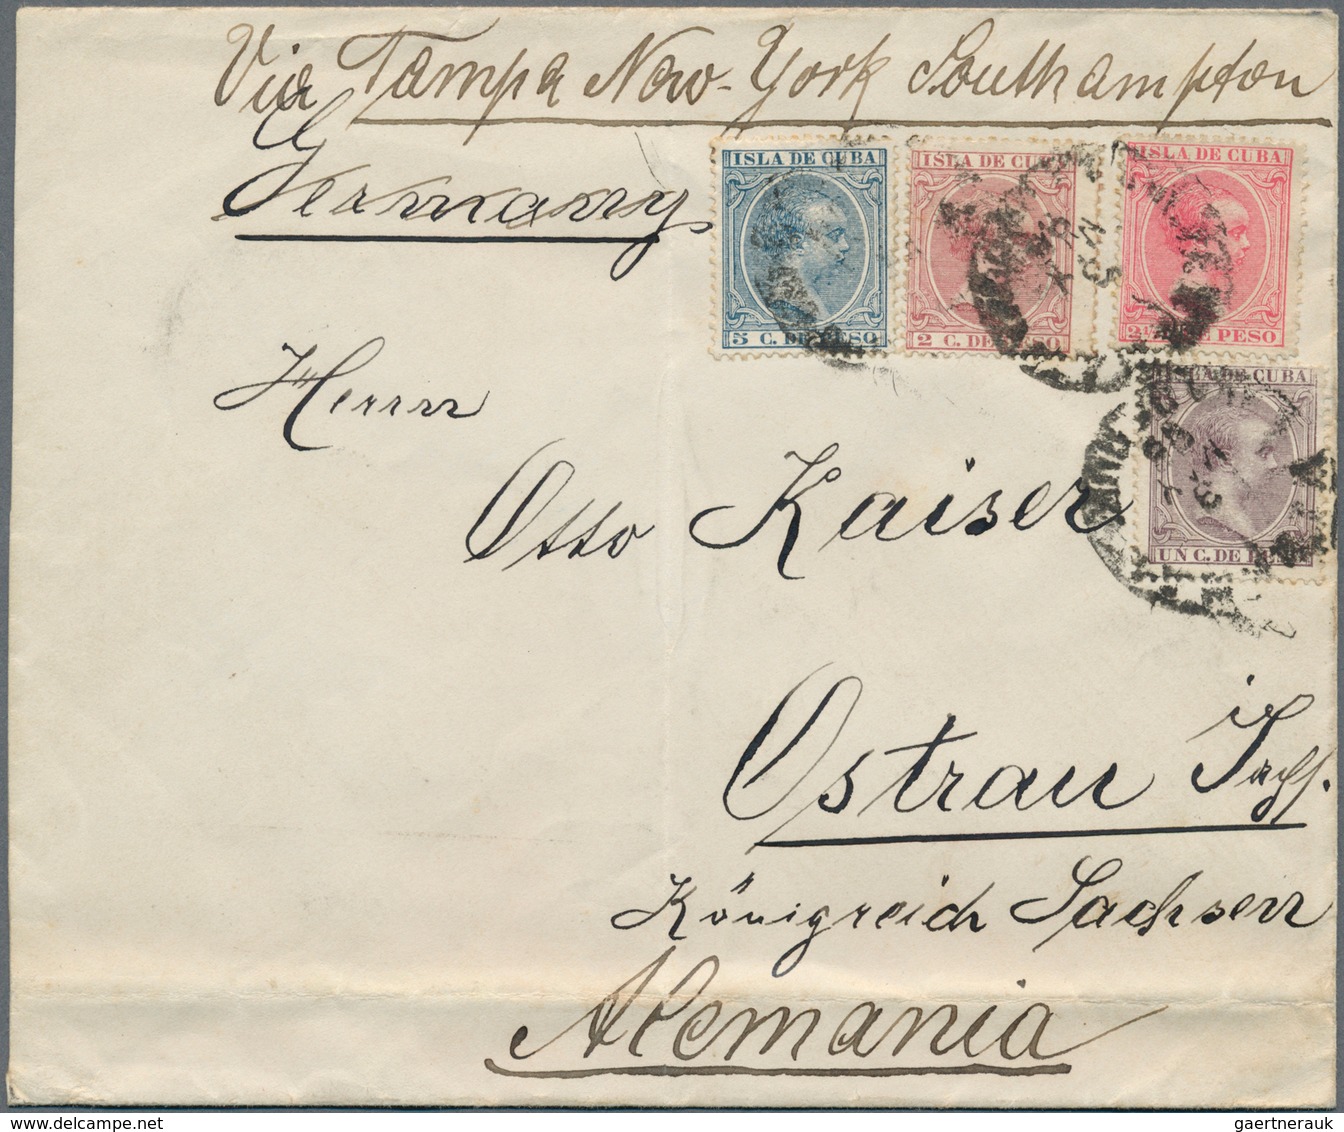 Via Tampa New-York Southampton
Germany
ISLA DE CUBA
5 C. DE PESO
ISLA DE CUBA
2 C. DE PESO
ISLA DE CUBA
PESO
DE CUBA
UN C. DE
Herrn
Otto Kaiser
Ostrau
Königreich Sachsen
Alemania
gaertnerauk